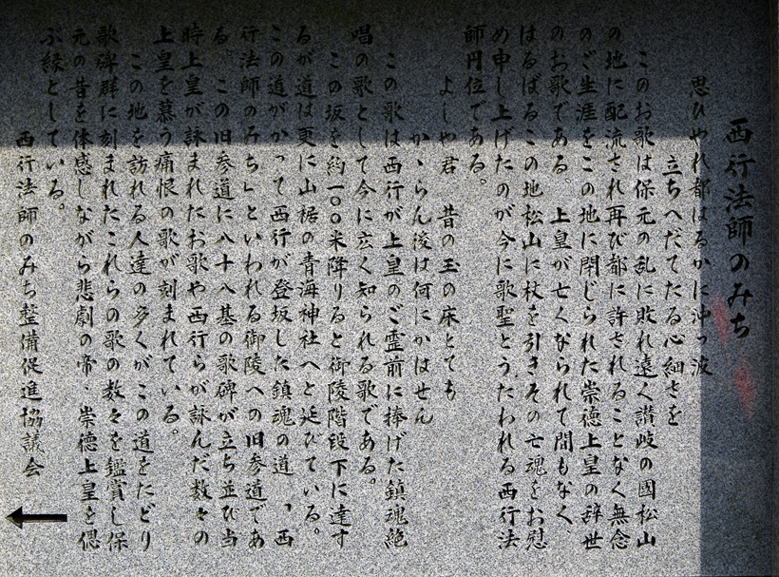 西行法師のみち
思ひやれ都はるかに沖つ波
立ちへだてたる心細さを
このお歌は保元の乱に敗れ遠く讃岐の國松山
の地に配流され再び都に許されることなく無念
のご生涯をこの地に閉じられた崇徳上皇の辞世
のお歌である。上皇が亡くなられて間もなく、
はるばるこの地松山に杖を引きその亡魂をお慰
め申し上げたのが今に歌聖とうたわれる西行法
師円位である。
よしや君　昔の玉の床とても
かゝらん後は何にかはせん
この歌は西行が上皇のご霊前に捧げた鎮魂絶
唱の歌として今に広く知られる歌である。
この坂を約一〇〇米降りると御陵階段下に達す
るが道は更に山裾の青海神社へと延びている。
この道がかつて西行が登坂した鎮魂の道、「西
行法師のみち」といわれる御陵への旧参道であ
る。この旧参道に八十八基の歌碑が立ち並び当
時上皇が詠まれたお歌や西行らが詠んだ数々の
上皇を慕う痛恨の歌が刻まれている。
この地を訪れる人達の多くがこの道をたどり
歌碑群に刻まれたこれらの歌の数々を鑑賞し保
元の昔を体感しながら悲劇の帝、崇徳上皇を偲
ぶ縁としている。
西行法師のみち整備促進協議会